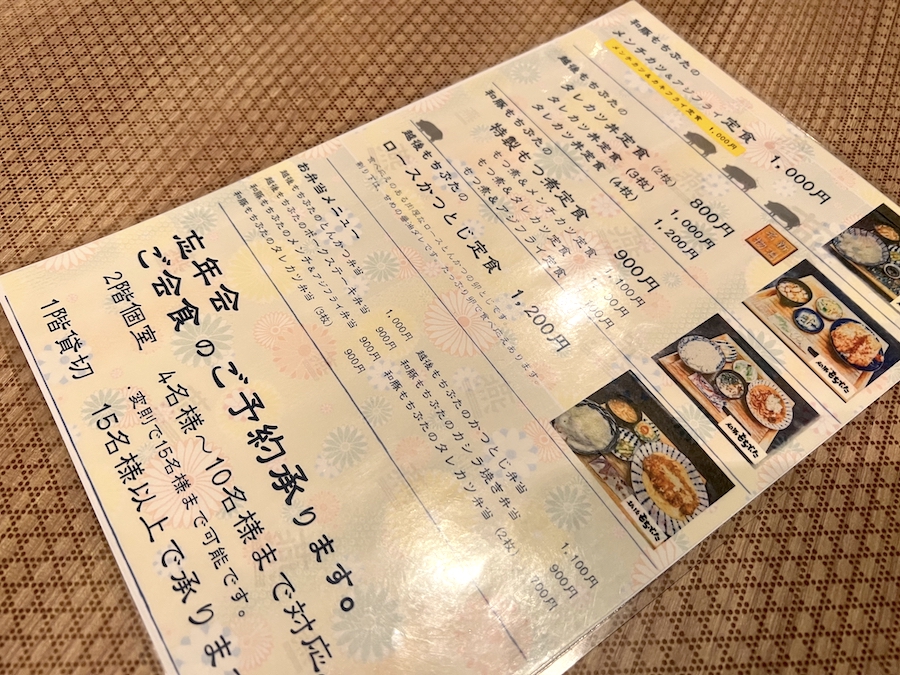 和豚もちぶたの
メンチカツ&アジフライ定食 1,000円
メンチカツ&カキフライ定食 1,000円
越後もちぶたの
タレカツ丼定食 (2枚) 800円
タレカツ丼定食 (3枚) 1,000円
タレカツ丼定食 (4枚) 1,200円
和豚もちぶたの
特製もつ煮定食 900円
もつ煮&メンチカツ定食 1,100円
もつ煮&タレカツ定食
もつ煮&アジフライ定食
越後もちぶたの
ロースかつとじ定食 1,200円
お弁当メニュー
越後もちぶたのとんかつ弁当 1,000円
越後もちぶたのポークステーキ弁当 900円
和豚もちぶたのメンチ&アジフライ弁当 900円
和豚もちぶたのタレカツ弁当 (3枚) 900円
越後もちぶたのかつとじ弁当 1,100円
和豚もちぶたのカシラ焼き弁当 900円
和豚もちぶたのタレカツ弁当 (2枚) 700円
忘年会
ご会食 のご予約承ります。
2階個室 4名様〜10名様まで対応
・変則で15名様まで可能です。
1階貸切 15名様以上で承ります